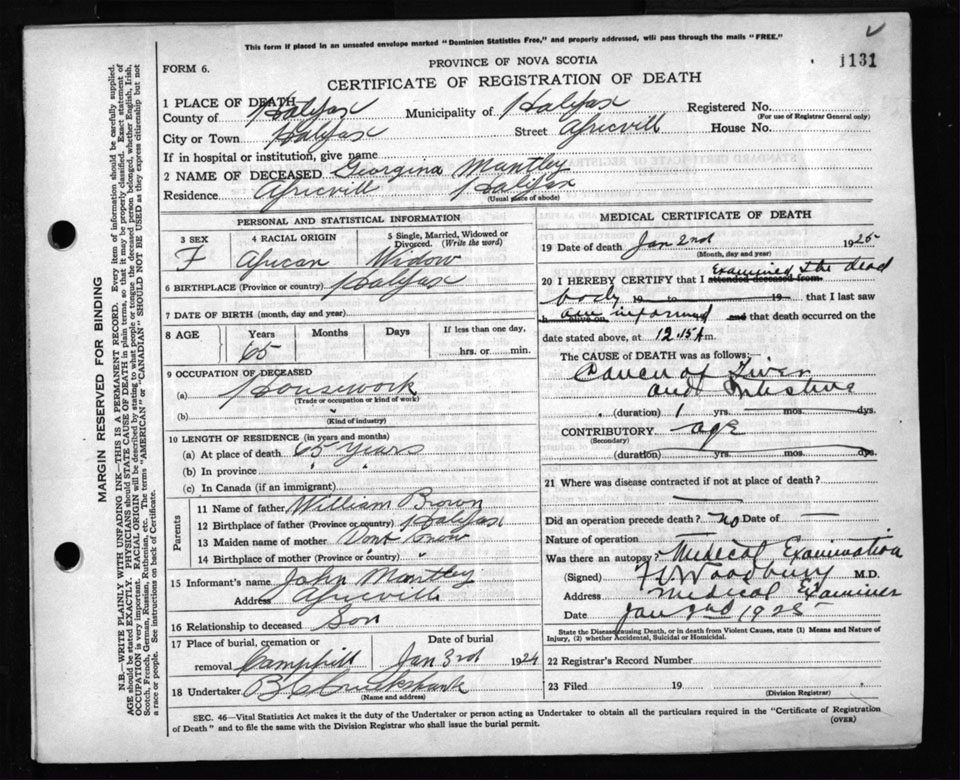 This form if placed in an unsealed envelope marked "Dominion Statistics Free," and properly addressed, will pass through the mails "FREE."
1131
PROVINCE OF NOVA SCOTIA
FORM 6.
CERTIFICATE OF REGISTRATION OF DEATH
1 PLACE OF DEATH
County of Halifax Municipality of Halifax Registered No.
(For use of Registrar General only)
City or Town Halifax Street Africvill House No.
If in hospital or institution, give name
2 NAME OF DECEASED Georgina Mantley
Residence Africvill Halifax
(Usual place of abode)
PERSONAL AND STATISTICAL INFORMATION
3 SEX F
4 RACIAL ORIGIN African
5 Single, Married, Widowed or Divorced. (Write the word) Widow
6 BIRTHPLACE (Province or country) Halifax
7 DATE OF BIRTH (month, day and year)
8 AGE Years Months Days If less than one day,
65 hrs. or min.
9 OCCUPATION OF DECEASED
(a) Housework
(Trade or occupation or kind of work)
(b)
(Kind of industry)
10 LENGTH OF RESIDENCE (in years and months)
(a) At place of death 65 years
(b) In province " "
(c) In Canada (if an immigrant)
Parents
11 Name of father William Brown
12 Birthplace of father (Province or country) Halifax
13 Maiden name of mother Dont Know
14 Birthplace of mother (Province or country) " "
15 Informant's name John Mantley
Address Africville
16 Relationship to deceased Son
17 Place of burial, cremation or removal Camphill
Date of burial Jan 3rd 1924
18 Undertaker
(Name and address)
MEDICAL CERTIFICATE OF DEATH
19 Date of death Jan 2nd 1925
(Month, day and year)
20 I HEREBY CERTIFY that I attended deceased from examined the dead
body 19 to 19 , that I last saw
h alive on am informed and that death occurred on
date stated above, at 12.15 A m.
The CAUSE of DEATH was as follows:
Cancer of Liver
and Intestine
(duration) 1 yrs. mos. dys.
CONTRIBUTORY age
(Secondary)
(duration) yrs. mos. dys.
21 Where was disease contracted if not at place of death?
Did an operation precede death? no Date of
Nature of operation
Was there an autopsy? Medical Examination
(Signed) Woodbury M.D.
Address Medical Examiner
Date Jan 2nd 1925
State the Disease causing Death, or in death from Violent Causes, state (1) Means and Nature of
Injury, (2) whether Accidental, Suicidal or Homicidal.
22 Registrar's Record Number
23 Filed 19
(Division Registrar)
SEC. 46—Vital Statistics Act makes it the duty of the Undertaker or person acting as Undertaker to obtain all the particulars required in the "Certificate of Registration
of Death" and to file the same with the Division Registrar who shall issue the burial permit.
(OVER)
MARGIN RESERVED FOR BINDING
N.B.—WRITE PLAINLY WITH UNFADING INK—THIS IS A PERMANENT RECORD. Every item of information should be carefully supplied.
AGE should be stated EXACTLY. PHYSICIANS should STATE CAUSE OF DEATH in plain terms, so that it may be properly classified. Exact statement of
OCCUPATION is very important. RACIAL ORIGIN will be described by stating to what people or tongue the deceased person belonged, whether English, Irish,
Scotch, French, German, Russian, Ruthenian, etc. The terms "AMERICAN" or "CANADIAN" SHOULD NOT BE USED as they express citizenship but not
a race or people. See instructions on back of Certificate.